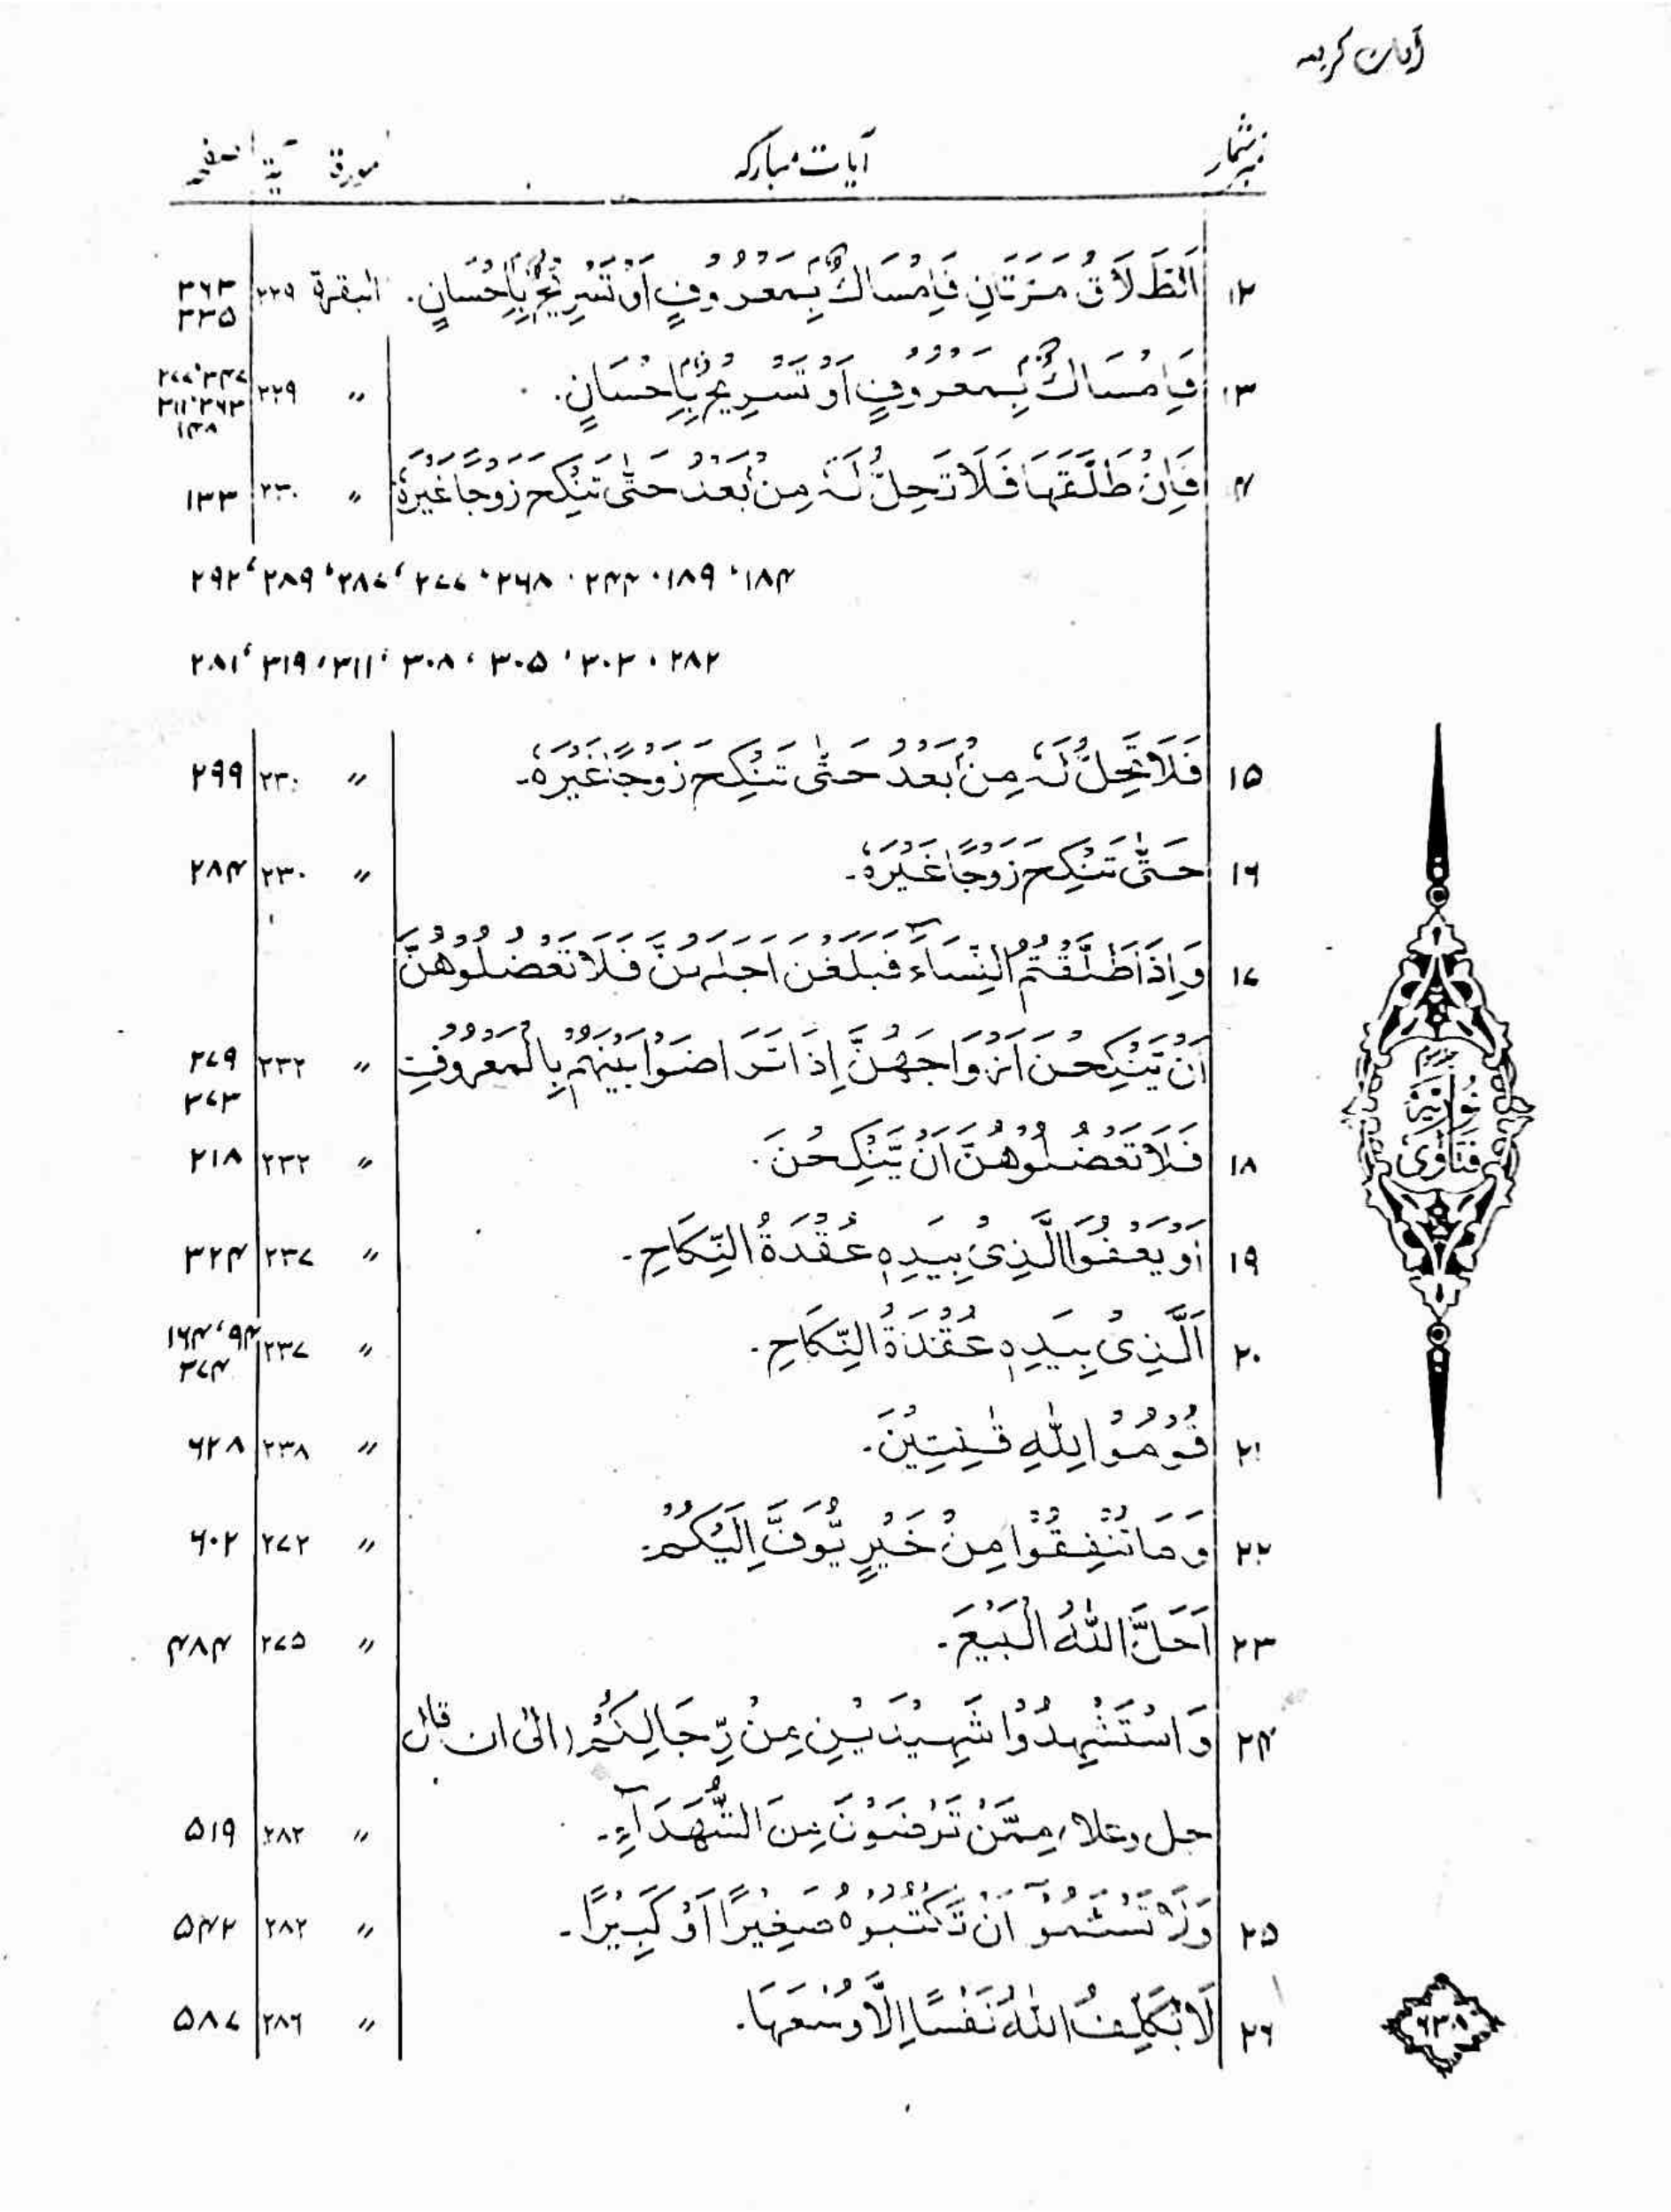 آیات کریمہ
نمبر شمار آیات مبارکہ سورۃ آیۃ صفحہ
۱۲ اَلطَّلَاقُ مَرَّتَانِ فَاِمْسَاكٌۢ بِمَعْرُوْفٍ اَوْ تَسْرِيْحٌۢ بِاِحْسَانٍ۔ البقرۃ ۲۲۹ ۳۶۳
۳۳۵
۱۳ فَاِمْسَاكٌۢ بِمَعْرُوْفٍ اَوْ تَسْرِيْحٌۢ بِاِحْسَانٍ۔ 〃 ۲۲۹ ۲۷۷،۳۴۷
۳۱۱،۲۶۳
۱۳۸
۱۴ فَاِنْ طَلَّقَهَا فَلَا تَحِلُّ لَهٗ مِنْۢ بَعْدُ حَتّٰى تَنْكِحَ زَوْجًا غَيْرَهٗ 〃 ۲۳۰ ۱۳۳
۱۸۴، ۱۸۹، ۲۴۴، ۲۶۸، ۲۷۷، ۲۸۷، ۲۸۹، ۲۹۲
۲۸۲، ۳۰۳، ۳۰۵، ۳۰۸، ۳۱۱، ۳۱۹، ۲۸۱
۱۵ فَلَا تَحِلُّ لَهٗ مِنْۢ بَعْدُ حَتّٰى تَنْكِحَ زَوْجًا غَيْرَهٗ۔ 〃 ۲۳۰ ۲۹۹
۱۶ حَتّٰى تَنْكِحَ زَوْجًا غَيْرَهٗ۔ 〃 ۲۳۰ ۲۸۴
۱۷ وَاِذَا طَلَّقْتُمُ النِّسَآءَ فَبَلَغْنَ اَجَلَهُنَّ فَلَا تَعْضُلُوْهُنَّ
اَنْ يَّنْكِحْنَ اَزْوَاجَهُنَّ اِذَا تَرَاضَوْا بَيْنَهُمْ بِالْمَعْرُوْفِ 〃 ۲۳۲ ۲۷۹
۳۷۳
۱۸ فَلَا تَعْضُلُوْهُنَّ اَنْ يَّنْكِحْنَ۔ 〃 ۲۳۲ ۲۱۸
۱۹ اَوْ يَعْفُوَا الَّذِىْ بِيَدِهٖ عُقْدَةُ النِّكَاحِ۔ 〃 ۲۳۷ ۳۲۴
۲۰ اَلَّذِىْ بِيَدِهٖ عُقْدَةُ النِّكَاحِ۔ 〃 ۲۳۷ ۹۴، ۱۶۴
۳۷۴
۲۱ قُوْمُوْا لِلّٰهِ قٰنِتِيْنَ۔ 〃 ۲۳۸ ۶۲۸
۲۲ وَمَا تُنْفِقُوْا مِنْ خَيْرٍ يُّوَفَّ اِلَيْكُمْ۔ 〃 ۲۷۲ ۶۰۲
۲۳ اَحَلَّ اللّٰهُ الْبَيْعَ۔ 〃 ۲۷۵ ۴۸۴
۲۴ وَاسْتَشْهِدُوْا شَهِيْدَيْنِ مِنْ رِّجَالِكُمْ (الیٰ ان قال
جل وعلا) مِمَّنْ تَرْضَوْنَ مِنَ الشُّهَدَآءِ۔ 〃 ۲۸۲ ۵۱۹
۲۵ وَلَا تَسْـَٔمُوْٓا اَنْ تَكْتُبُوْهُ صَغِيْرًا اَوْ كَبِيْرًا۔ 〃 ۲۸۲ ۵۴۲
۲۶ لَا يُكَلِّفُ اللّٰهُ نَفْسًا اِلَّا وُسْعَهَا۔ 〃 ۲۸۶ ۵۸۷
فتاویٰ نوریہ